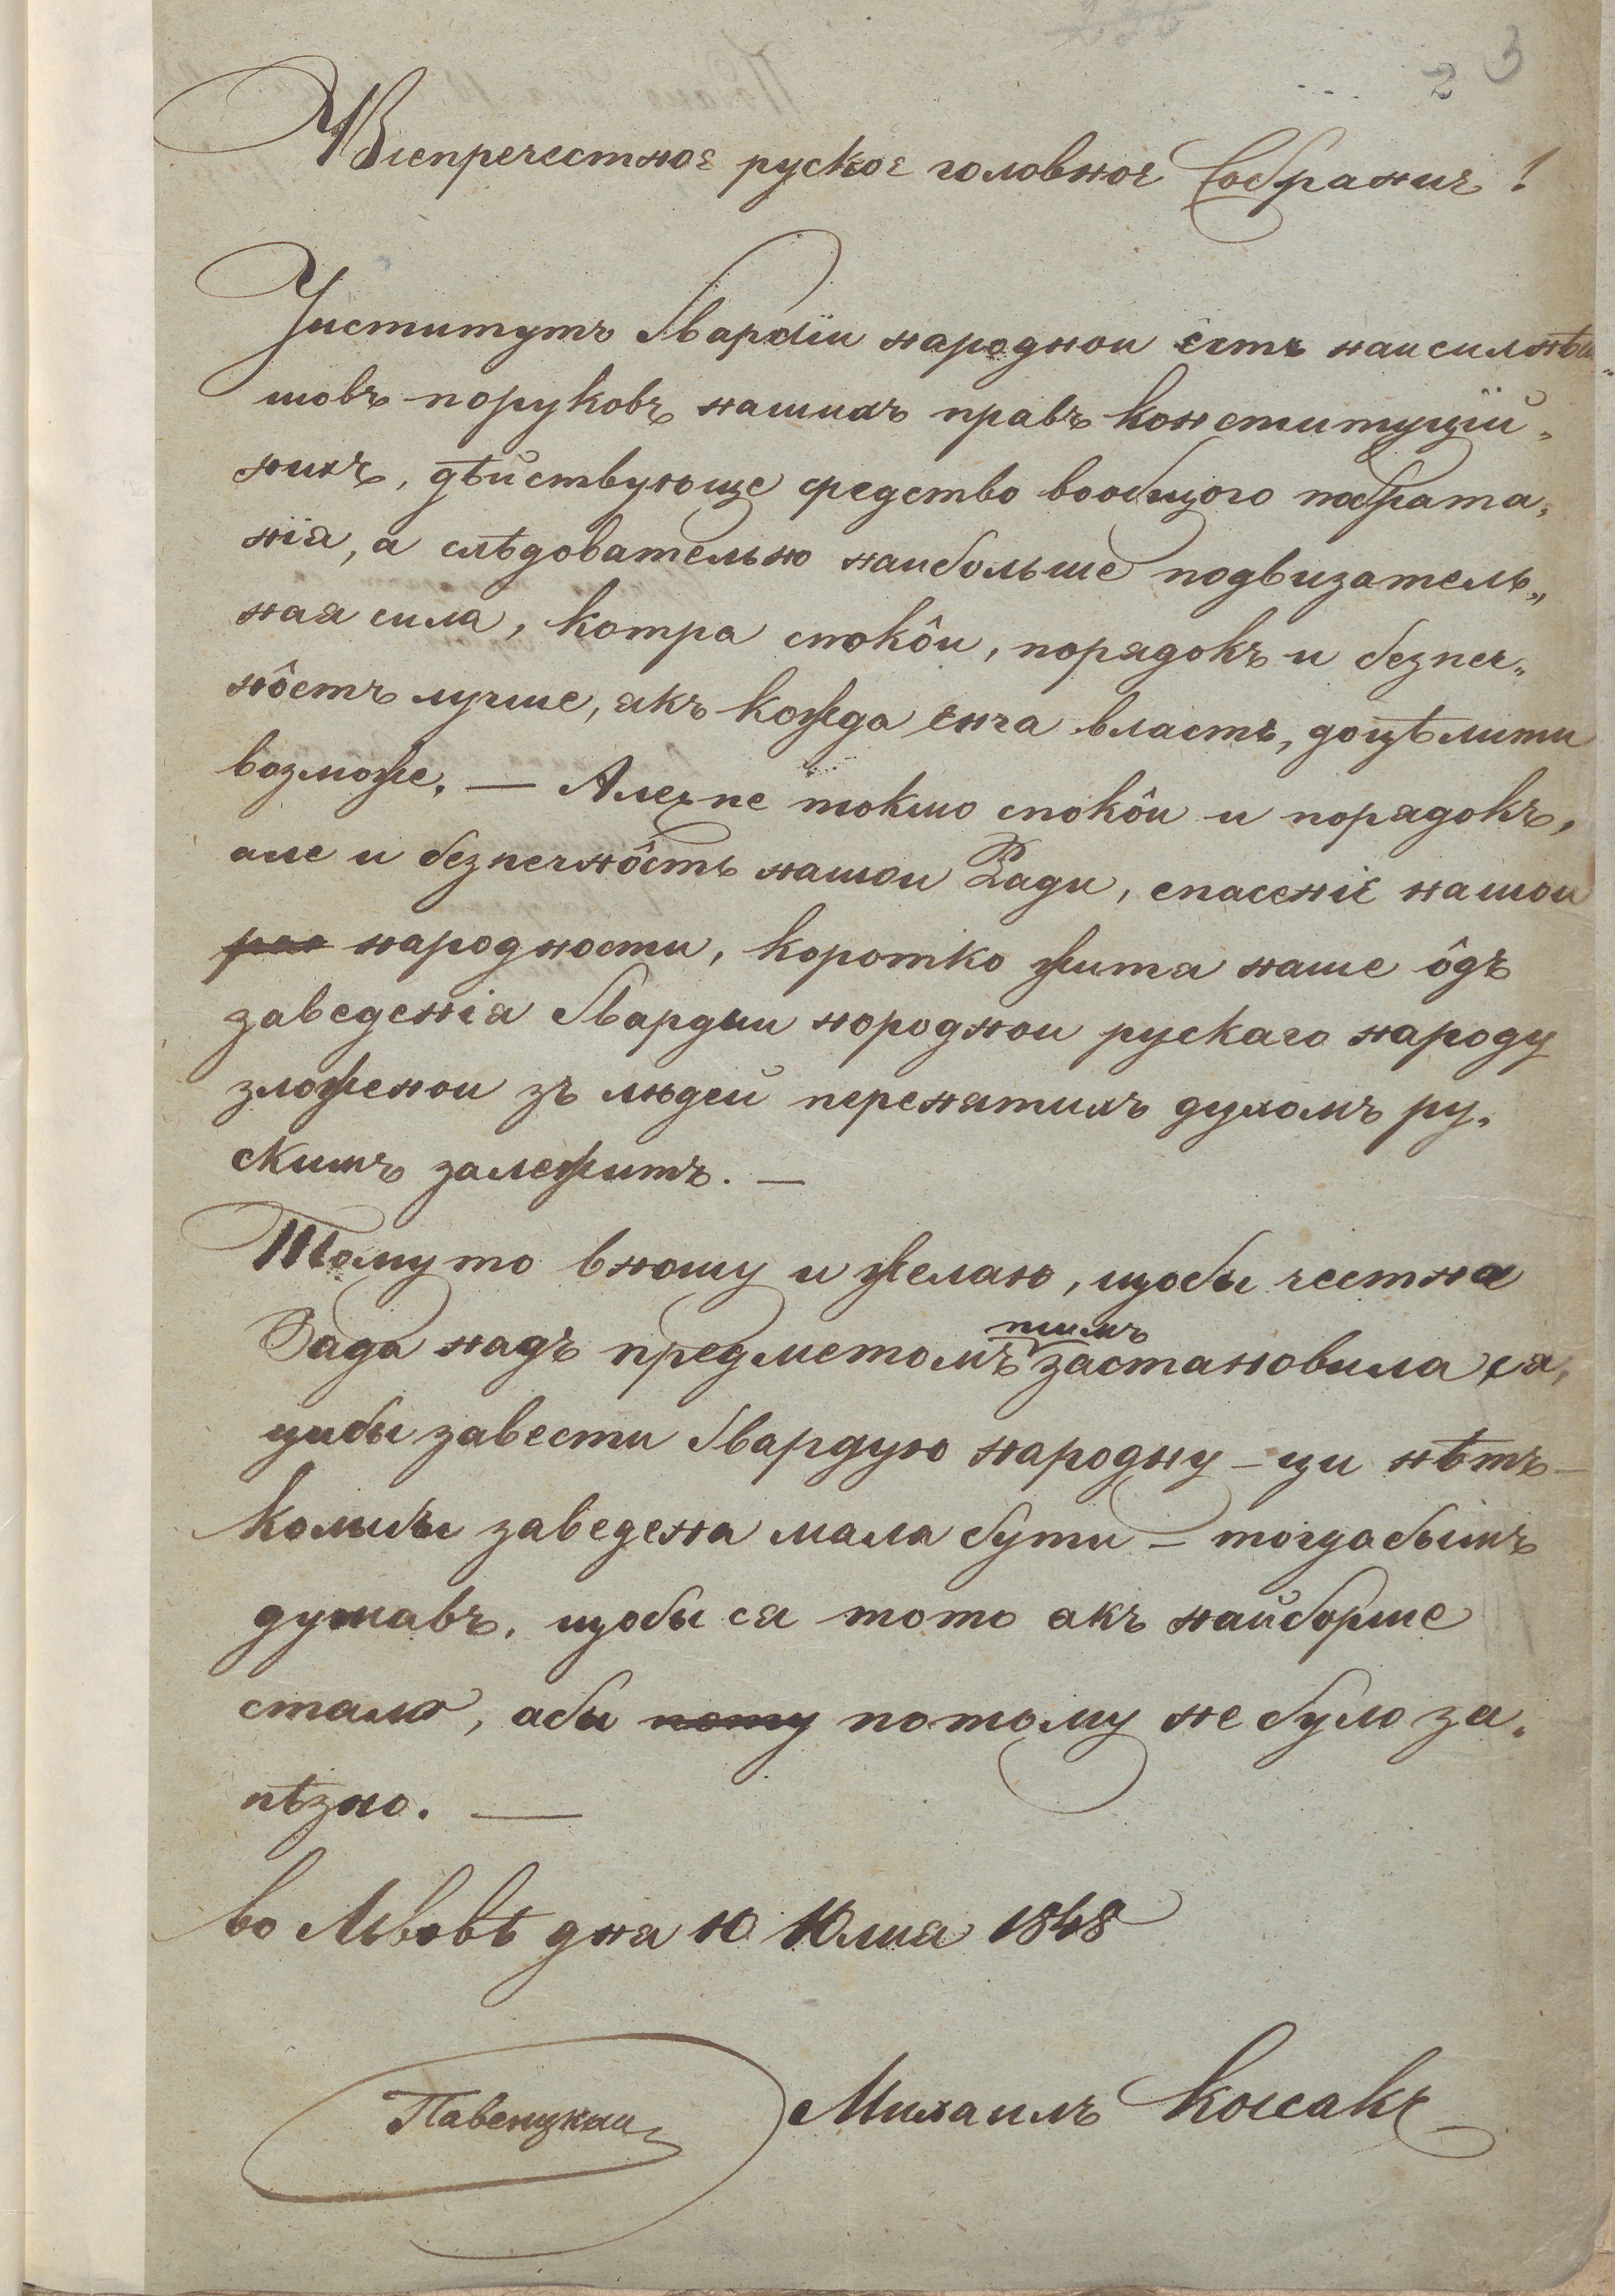 2 3
Всепречестноє рускоє головноє Собраниє!
Институтъ Гвардіи народнои єсть наисилнѣи„
шовъ поруковъ нашихъ правъ конституційˮ
нихъ, дѣйствующе средство вообщого побрата„
нія, а слѣдовательно наибольше подвизатель„
ная сила, котра спокôи, порядокъ и безпеч„
нôсть лучше, якъ кожда єнча власть, доцѣлити
возможе. — Але не токмо спокôи и порядокъ,
але и безпечнôсть нашои Ради, спасеніє нашои
рао народности, коротко житя наше ôдъ
заведенія Гвардыи нороднои рускаго народу
зложенои зъ людей перенятихъ духомъ ру„
скимъ залежитъ. —
Тому то вношу и желаю, щобы честна
Рада надъ предметомъ тимъ застановила ся,
цибы завести Гвардыю народну – ци нѣтъ –
колибы заведена мала бути – тогда бымъ
думавъ, щобы ся тото якъ найборше
стало, абы пому потому не було за„
пѣзно. —
во Львовѣ дня 10 Юлия 1848
Михаилъ Коссакъ
Павенцкии